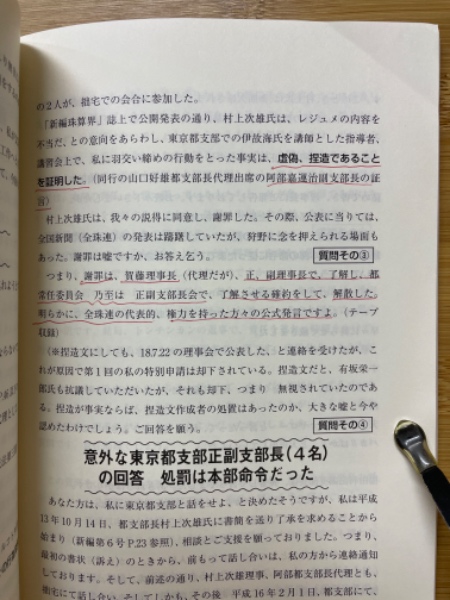 の2人が、拙宅での会合に参加した。
「新編珠算界」誌上で公開発表の通り、村上次雄氏は、レジュメの内容を
不当だ、との意向をあらわし、東京都支部での伊故海氏を講師とした指導者、
講習会上で、私に羽交い締めの行動をとった事実は、虚偽、捏造であること
を証明した。(同行の山口好雄都支部長代理出席の阿部嘉運治副支部長の証
言)
村上次雄氏は、我々の説得に同意し、謝罪した。その際、公表に当りては、
全国新聞(全珠連)の発表は躊躇していたが、狩野に念を押えられる場面も
あった。謝罪は嘘ですか、お答え乞う。 質問その③
つまり、謝罪は、賀藤理事長(代理だが)、正、副理事長で、了解し、都
常任委員会 乃至は 正副支部長会で、了解させる確約をして、解散した。
明らかに、全珠連の代表的、権力を持った方々の公式発言ですよ。(テープ
収録)
(※捏造文にしても、18.7.22の理事会で公表した、と連絡を受けたが、こ
が原因で第1回の私の特別申請は却下されている。捏造文だと、有坂栄一
郎氏も抗議していただいたが、それも却下、つまり 無視されていたのであ
る。捏造が事実ならば、捏造文作成者の処置はあったのか、大きな嘘と今や
認めたわけでしょう。ご回答を願う。 質問その④
意外な東京都支部正副支部長(4名)
の回答 処罰は本部命令だった
あなた方は、私に東京都支部と話をせよ、と決めたそうですが、私は平成
13年10月14日、都支部長村上次雄氏に書簡を送り了承を求めることから
始まり(新編第6号P.23参照)、相談とご支援を願っておりました。つまり、
最初の書状(訴え)のときから、前もって話し合いは、私の方から連絡通知
しております。そして、前述の通り、村上次雄理事、阿部都支部長代理とも、
拙宅にて話し合い、そしてしかも、その後 平成16年2月1日、都支部にて、